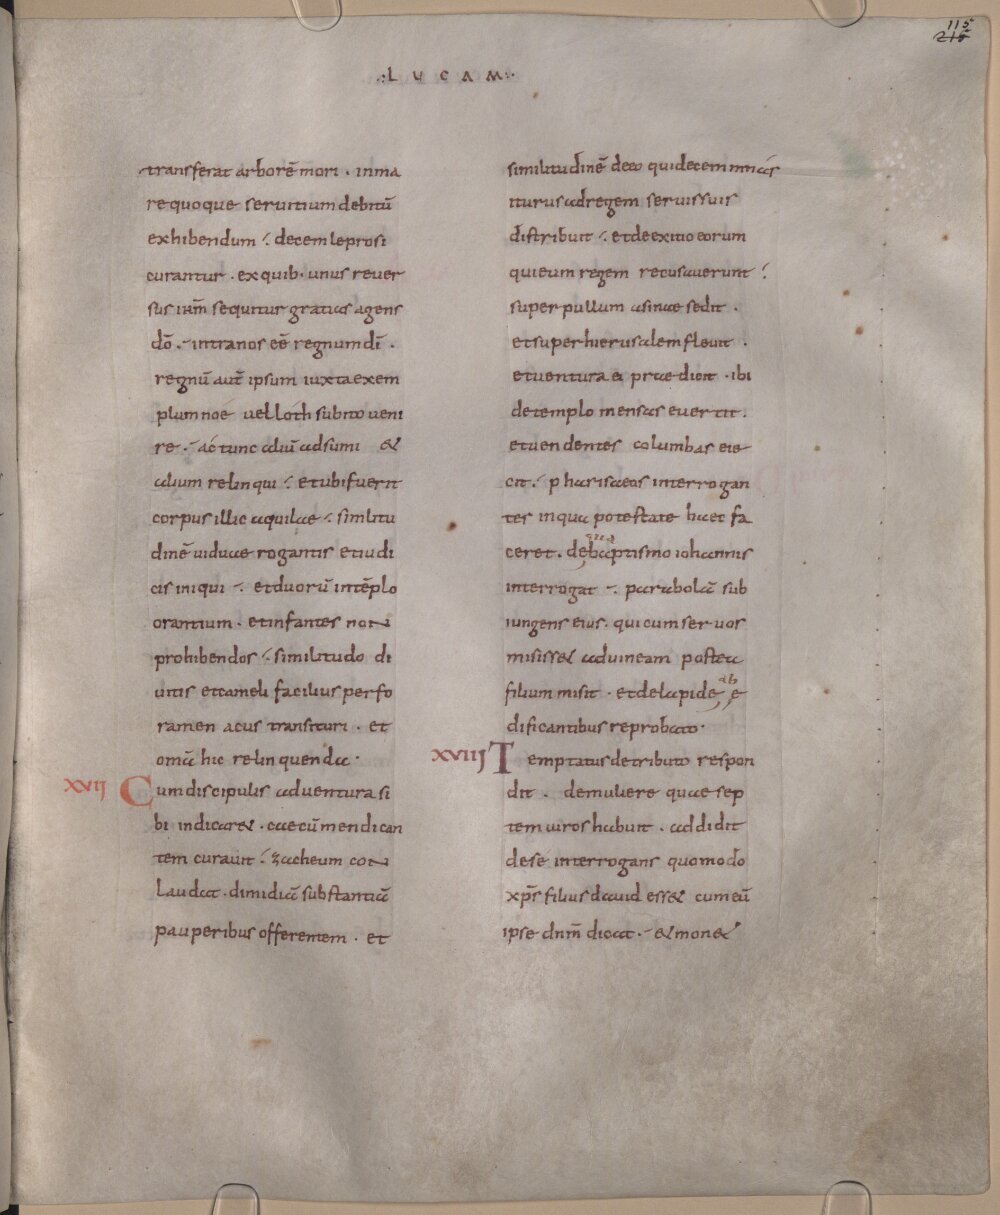 115
215
:LUCAM:
transferat arborē mori . inma
re quoque seruitium debitū
exhibendum ; decem leprosi
curantur . ex quib· unus reuer
sus iam̄ sequitur gratias agens
dō . intra nos eē regnum dī .
regnū aut̄ ipsum iuxta exem
plum noe uel loth subito ueni
re . ac tunc aliū adsumi &
alium relinqui ; et ubi fuerit
corpus illic aquilae ; similitu
dinē uiduae rogantis et iudi
cis iniqui ; et duorū intēplo
orantium . et infantes non
prohibendos ; similitudo di
uitis et cameli facilius per fo
ramen acus transituri . et
omā hic relinquenda .
XVII Cum discipulis aduentura si
bi indicar& . caecū mendican
tem curauit ; zacheum con
laudat . dimidiā substantiā
pauperibus offerentem . et
similitudinē deeo qui decem mnas
iturus ad regem seruis suis
distribuit ; et de exitio eorum
qui eum regem recusauerunt ;
super pullum asinae sedit .
et super hierusalem fleuit .
et uentura ei praedicit . ibi
de templo mensas euertit .
et uendentes columbas eie
cit . pharisaeos interrogan
tes in qua potestate haec fa
ceret . de baptismo iohannis
interrogat ; parabolā sub
iungens eius . qui cum seruos
misiss& ad uineam postea
filium misit . et de lapide ab e
dificantibus reprobato .
XVIII Temptatus de tributo respon
dit . de muliere quae sep
tem uiros habuit . addidit
de se interrogans quomodo
xp̄s filius dauid ess& cum eū
ipse dnm̄ dicat . & mon&